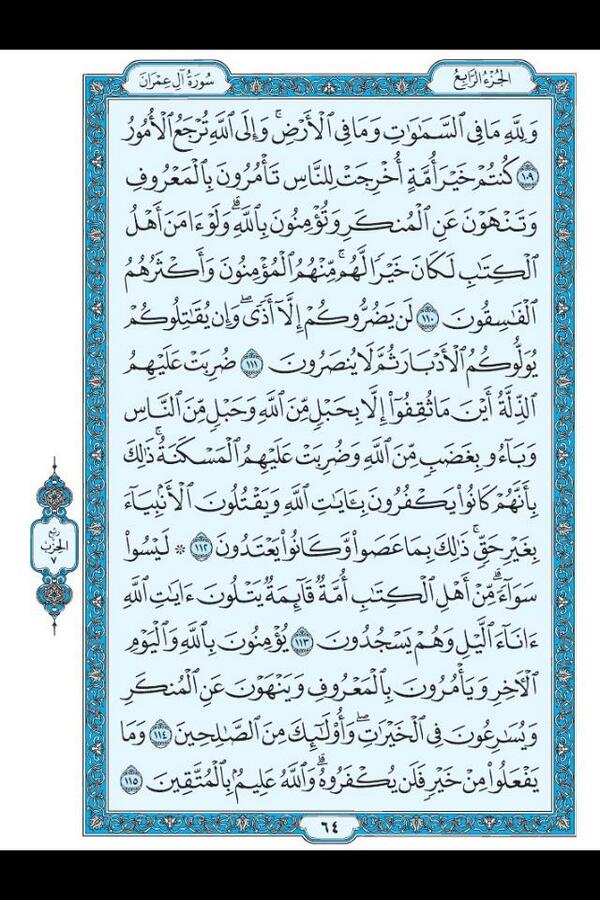 الجزء الرابع
سورة آل عمران
وَلِلَّهِ مَا فِي ٱلسَّمَٰوَٰتِ وَمَا فِي ٱلۡأَرۡضِۚ وَإِلَى ٱللَّهِ تُرۡجَعُ ٱلۡأُمُورُ
١٠٩ كُنتُمۡ خَيۡرَ أُمَّةٍ أُخۡرِجَتۡ لِلنَّاسِ تَأۡمُرُونَ بِٱلۡمَعۡرُوفِ
وَتَنۡهَوۡنَ عَنِ ٱلۡمُنكَرِ وَتُؤۡمِنُونَ بِٱللَّهِۗ وَلَوۡ ءَامَنَ أَهۡلُ
ٱلۡكِتَٰبِ لَكَانَ خَيۡرٗا لَّهُمۚ مِّنۡهُمُ ٱلۡمُؤۡمِنُونَ وَأَكۡثَرُهُمُ
ٱلۡفَٰسِقُونَ ١١٠ لَن يَضُرُّوكُمۡ إِلَّآ أَذٗىۖ وَإِن يُقَٰتِلُوكُمۡ
يُوَلُّوكُمُ ٱلۡأَدۡبَارَ ثُمَّ لَا يُنصَرُونَ ١١١ ضُرِبَتۡ عَلَيۡهِمُ
ٱلذِّلَّةُ أَيۡنَ مَا ثُقِفُوٓاْ إِلَّا بِحَبۡلٖ مِّنَ ٱللَّهِ وَحَبۡلٖ مِّنَ ٱلنَّاسِ
وَبَآءُو بِغَضَبٖ مِّنَ ٱللَّهِ وَضُرِبَتۡ عَلَيۡهِمُ ٱلۡمَسۡكَنَةُۚ ذَٰلِكَ
بِأَنَّهُمۡ كَانُواْ يَكۡفُرُونَ بِـَٔايَٰتِ ٱللَّهِ وَيَقۡتُلُونَ ٱلۡأَنۢبِيَآءَ
بِغَيۡرِ حَقّٖۚ ذَٰلِكَ بِمَا عَصَواْ وَّكَانُواْ يَعۡتَدُونَ ١١٢ ۞ لَيۡسُواْ
سَوَآءٗۗ مِّنۡ أَهۡلِ ٱلۡكِتَٰبِ أُمَّةٞ قَآئِمَةٞ يَتۡلُونَ ءَايَٰتِ ٱللَّهِ
ءَانَآءَ ٱلَّيۡلِ وَهُمۡ يَسۡجُدُونَ ١١٣ يُؤۡمِنُونَ بِٱللَّهِ وَٱلۡيَوۡمِ
ٱلۡأٓخِرِ وَيَأۡمُرُونَ بِٱلۡمَعۡرُوفِ وَيَنۡهَوۡنَ عَنِ ٱلۡمُنكَرِ
وَيُسَٰرِعُونَ فِي ٱلۡخَيۡرَٰتِۖ وَأُوْلَٰٓئِكَ مِنَ ٱلصَّٰلِحِينَ ١١٤ وَمَا
يَفۡعَلُواْ مِنۡ خَيۡرٖ فَلَن يُكۡفَرُوهُۗ وَٱللَّهُ عَلِيمُۢ بِٱلۡمُتَّقِينَ ١١٥
ربع
الحزب
٧
٦٤